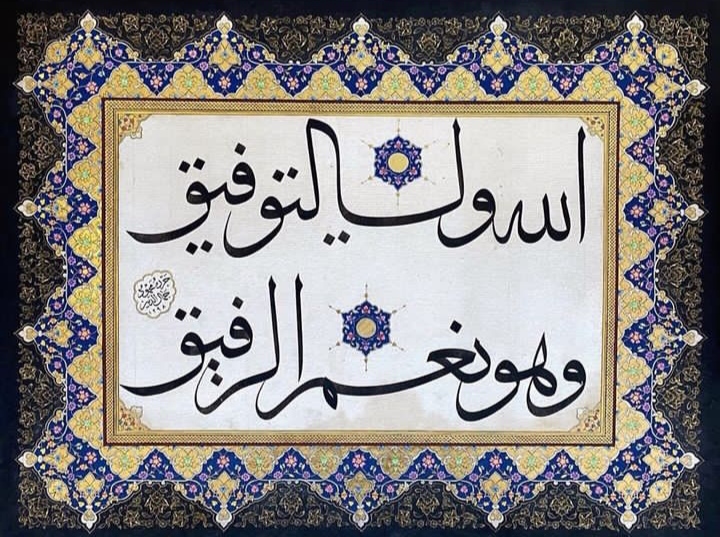 الله ولي التوفيق
وهو نعم الرفيق